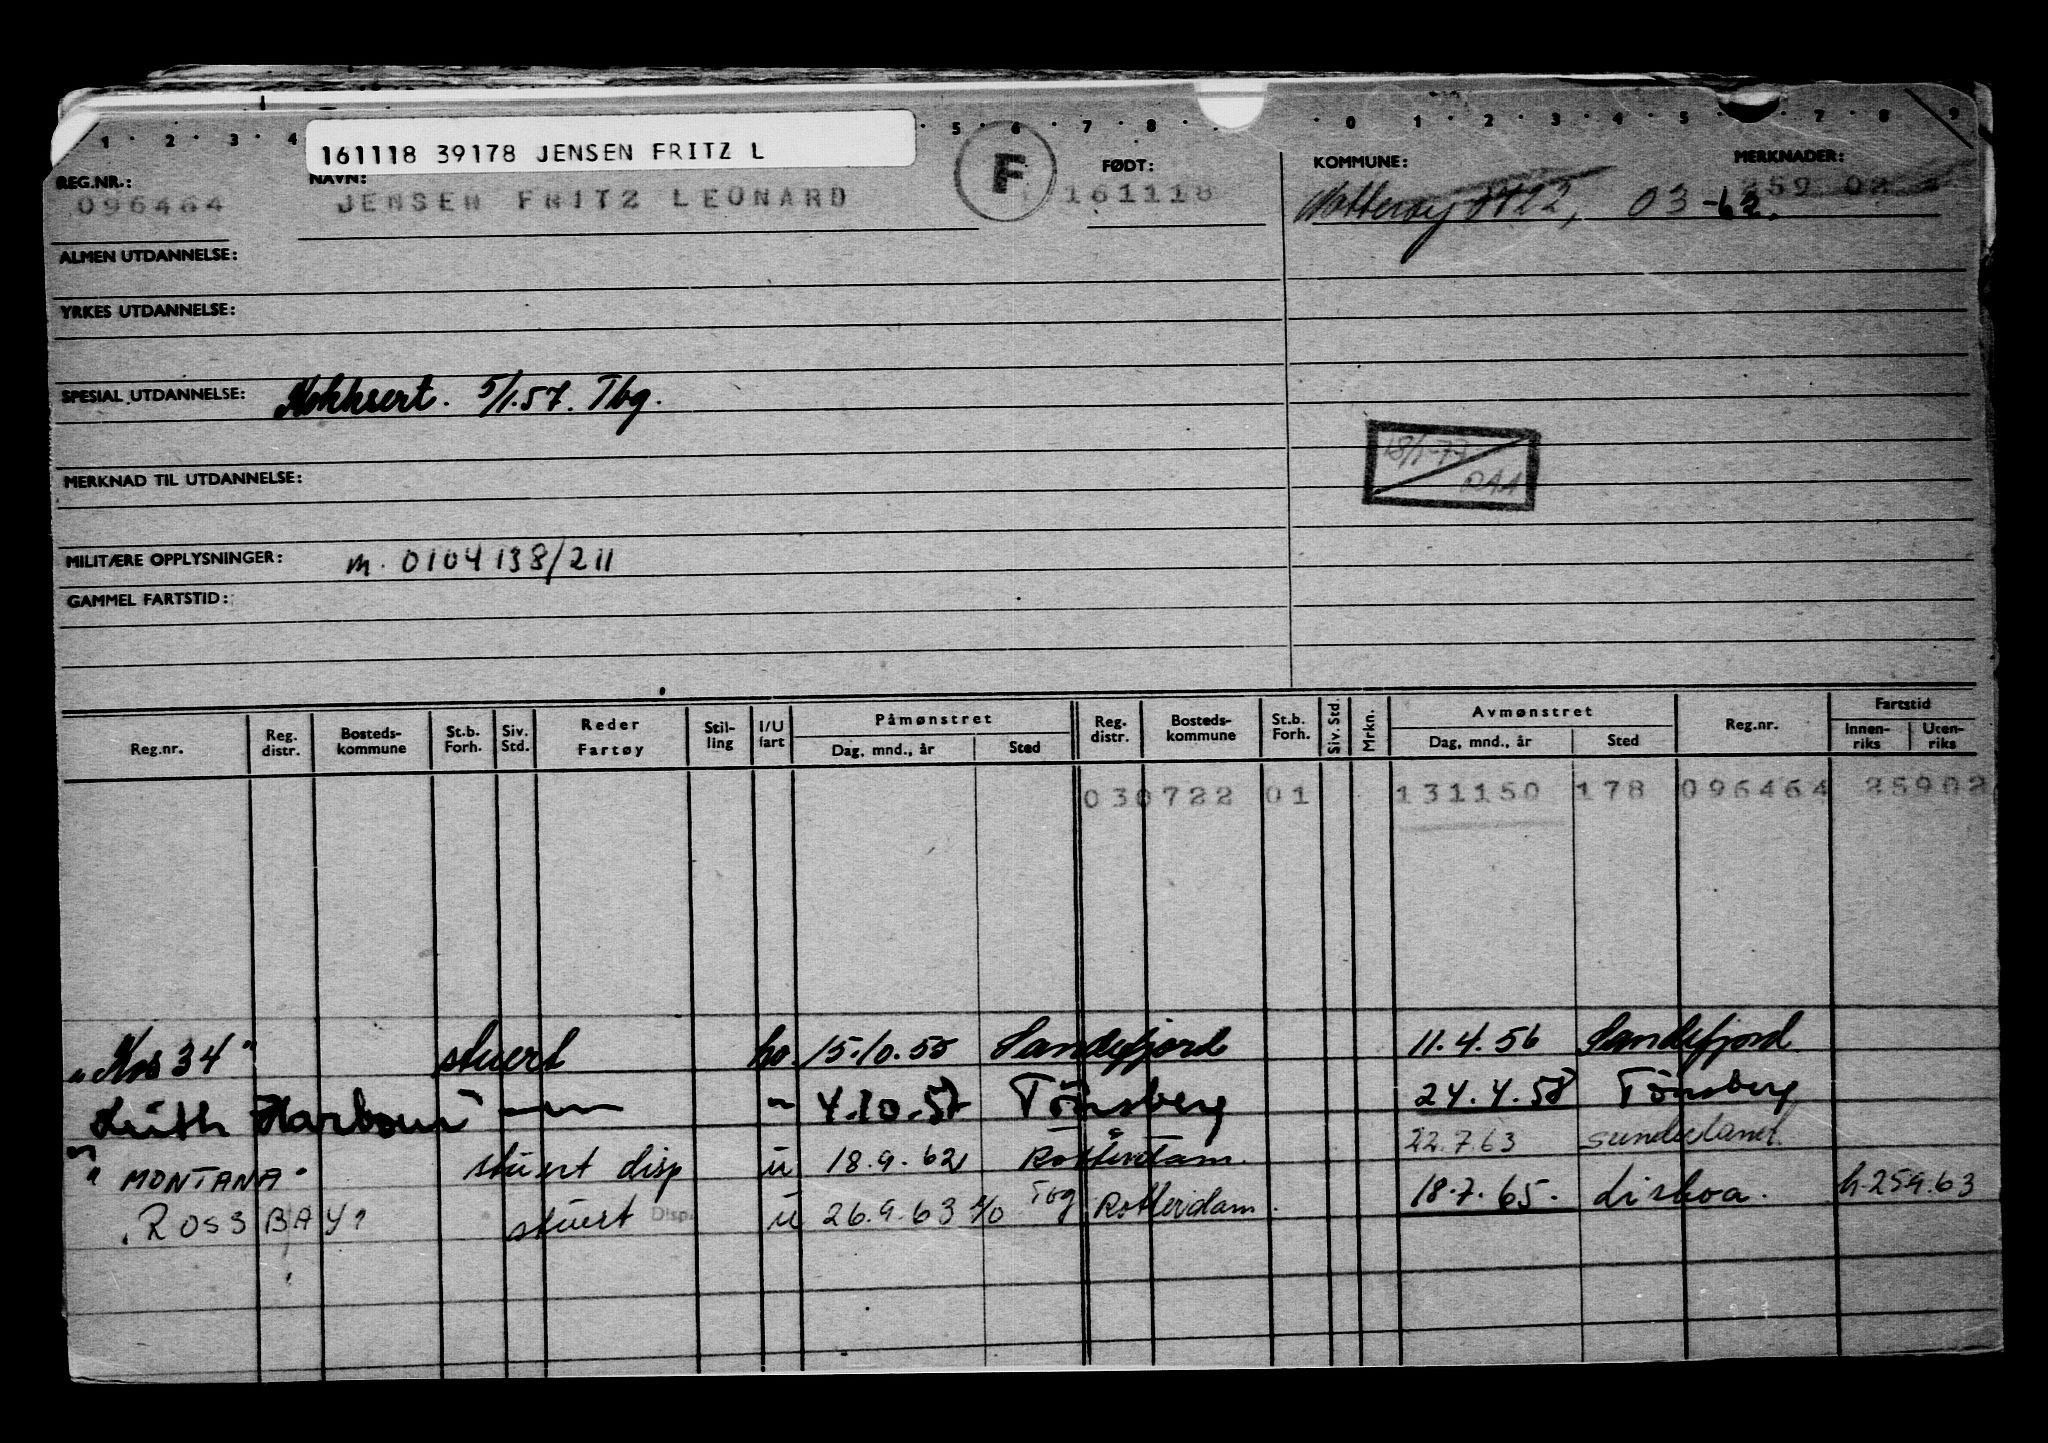 1 · 2 · 3 · 4 5 · 6 · 7 · 8 · · 0 1 · 2 · 3 · 4 · 5 · 7 · 8 9
161118 39178 JENSEN FRITZ L
REG.NR.: NAVN: F FØDT: KOMMUNE: MERKNADER:
096464 JENSEN FRITZ LEONARD 161118 Nøtterøy 0722, 03-62.
ALMEN UTDANNELSE:
YRKES UTDANNELSE:
SPESIAL UTDANNELSE: Kokksert. 5/1.57. Tbg.
18/1-77
RAA
MERKNAD TIL UTDANNELSE:
MILITÆRE OPPLYSNINGER: m. 0104138/211
GAMMEL FARTSTID:
Reg.nr. Reg. distr. Bosteds-kommune St.b. Forh. Siv. Std. Reder Fartøy Stil-ling I/U fart Påmønstret Dag, mnd., år Sted Reg. distr. Bosteds-kommune St.b. Forh. Siv. Std. Mrkn. Avmønstret Dag, mnd., år Sted Reg.nr. Fartstid Innen-riks Uten-riks
030722 01 131150 178 096464 25902
"Kos 34" stuert 15.10.55 Sandefjord 11.4.56 Sandefjord
Leith Harbour" —"— " 4.10.57 Tönsberg 24.4.58 Tönsberg
" MONTANA" stuert disp u 18.9.62 Rotterdam. 22.7.63 Sunderland.
"ROSS BAY" stuert Disp. u 26.9.63 Tbg Rotterdam. 18.7.65. Lisboa. h.259.63